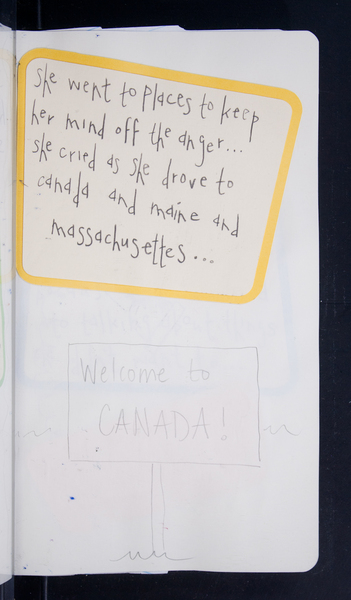 she went to places to keep
her mind off the anger...
she cried as she drove to
canada and maine and
massachusettes...
Welcome to
CANADA!